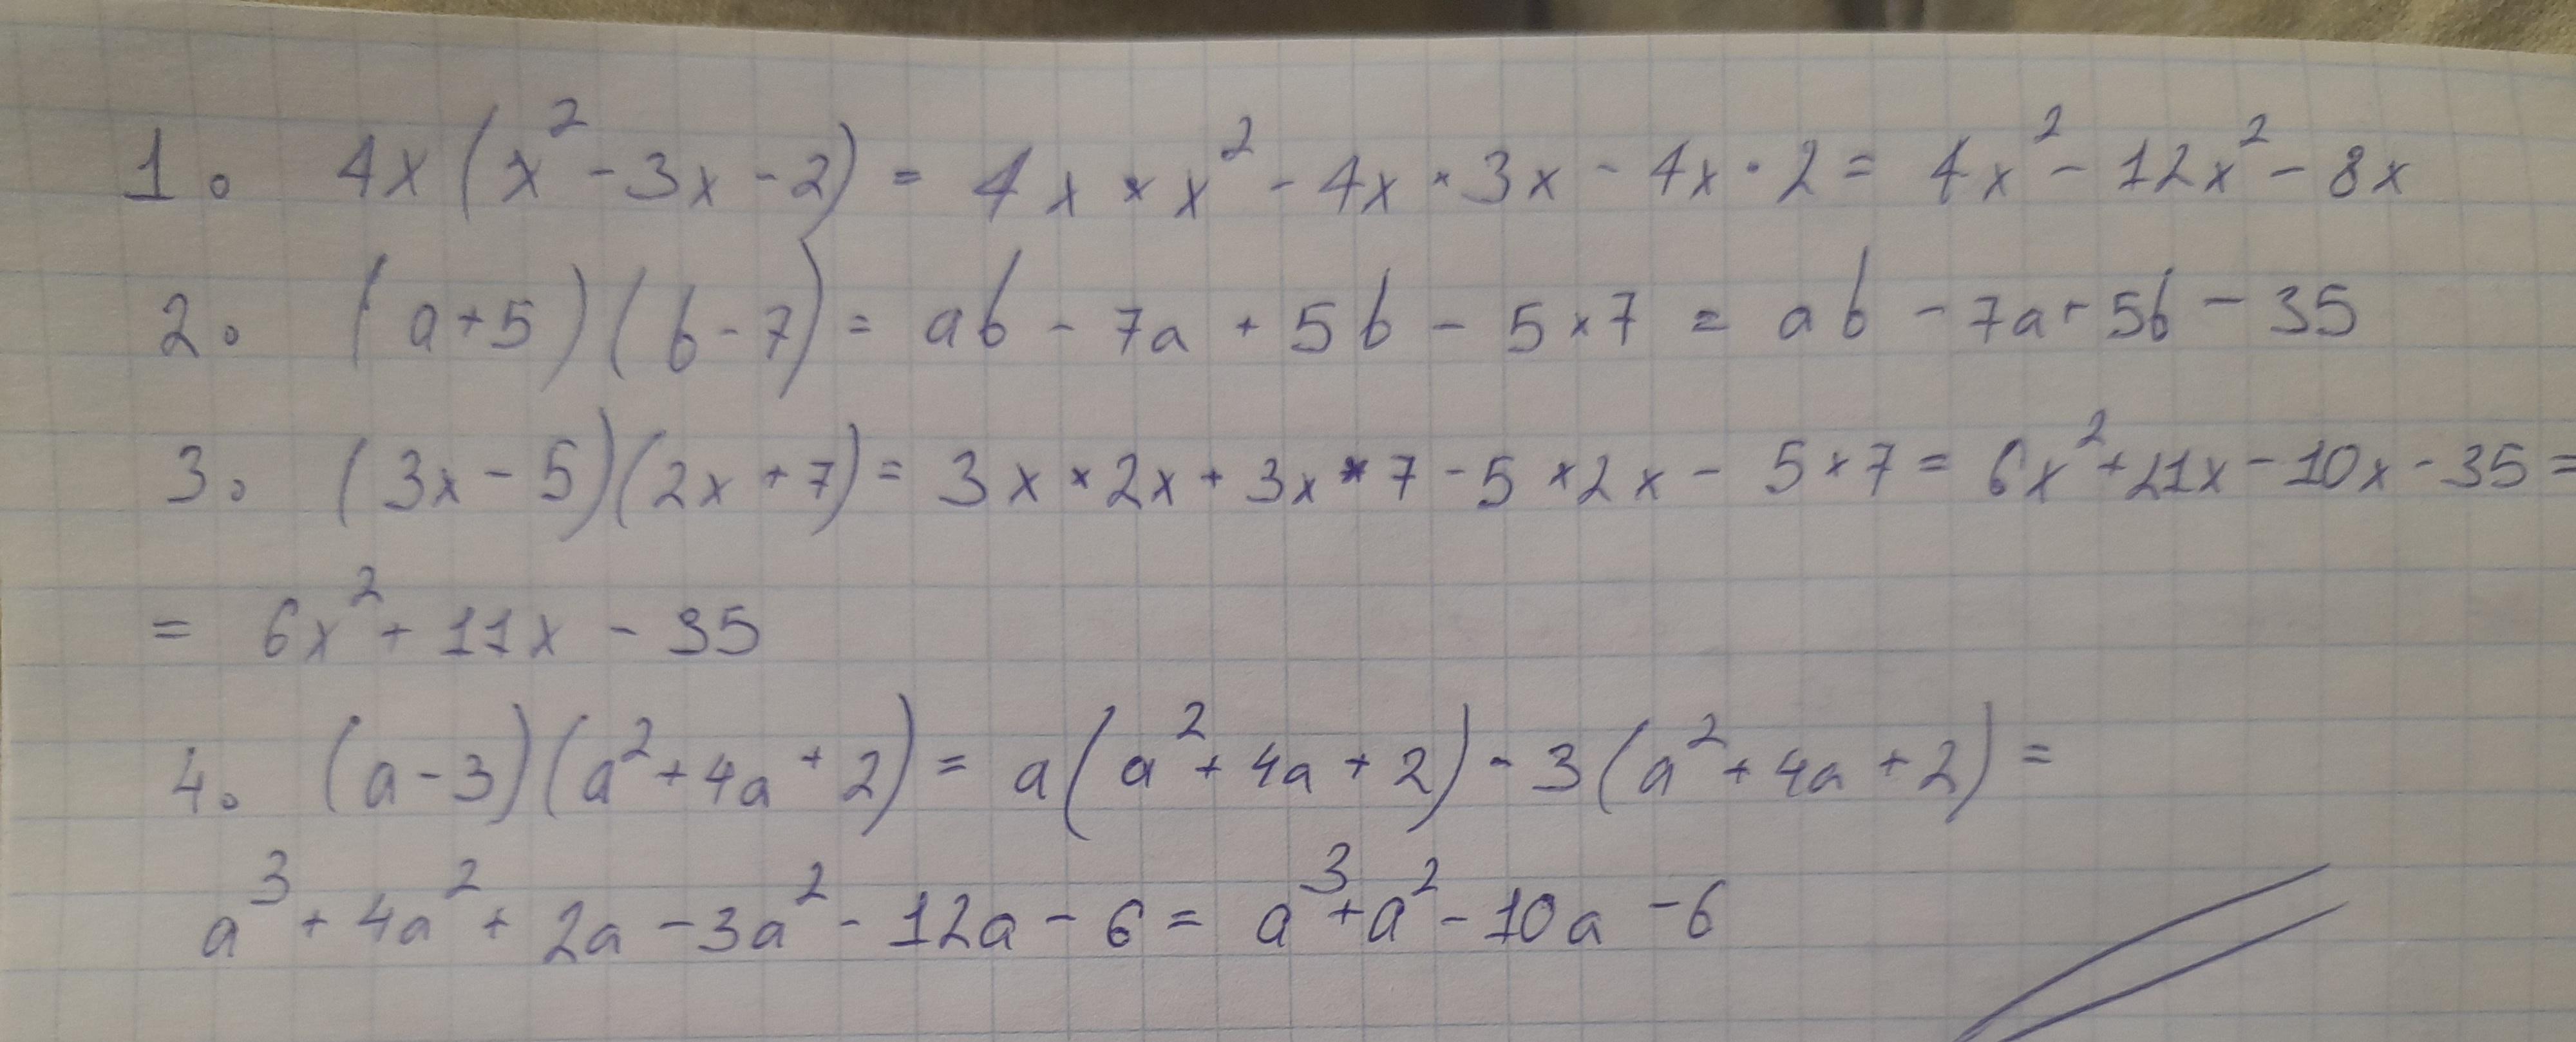 1. 4x(x²-3x-2) = 4x × x² - 4x × 3x - 4x · 2 = 4x² - 12x² - 8x
2. (a+5)(b-7) = ab - 7a + 5b - 5×7 = ab - 7a + 5b - 35
3. (3x-5)(2x+7) = 3x × 2x + 3x × 7 - 5 × 2x - 5×7 = 6x²+21x-10x-35 =
= 6x² + 11x - 35
4. (a-3)(a²+4a+2) = a(a²+4a+2) - 3(a²+4a+2) =
a³ + 4a² + 2a - 3a² - 12a - 6 = a³+a²-10a-6